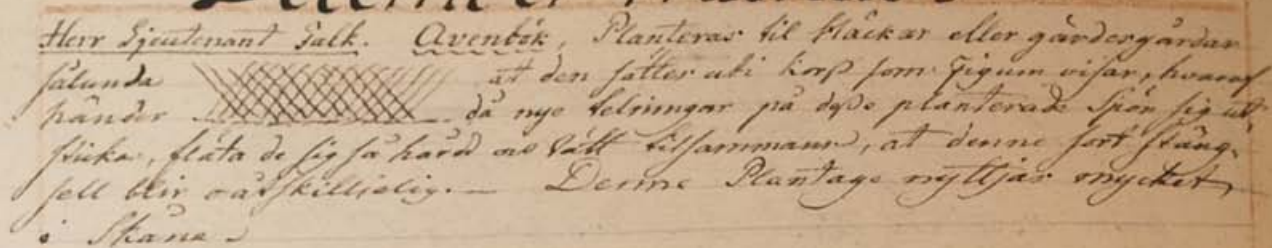 Herr Lieutenant Falk. Avenbok, Planteras til Häckar eller gärdesgårdar
sålunda at den sätter uti korß som Figurn visar, hvaraf
händer då nye telningar på deße planterade Spön sig ut
sticka, fläta de sig så hård och tätt tilsammans, at denne sort stäng-
sell blir oåtskilljelig. — Denne Plantage nyttjas mycket
i Skåne